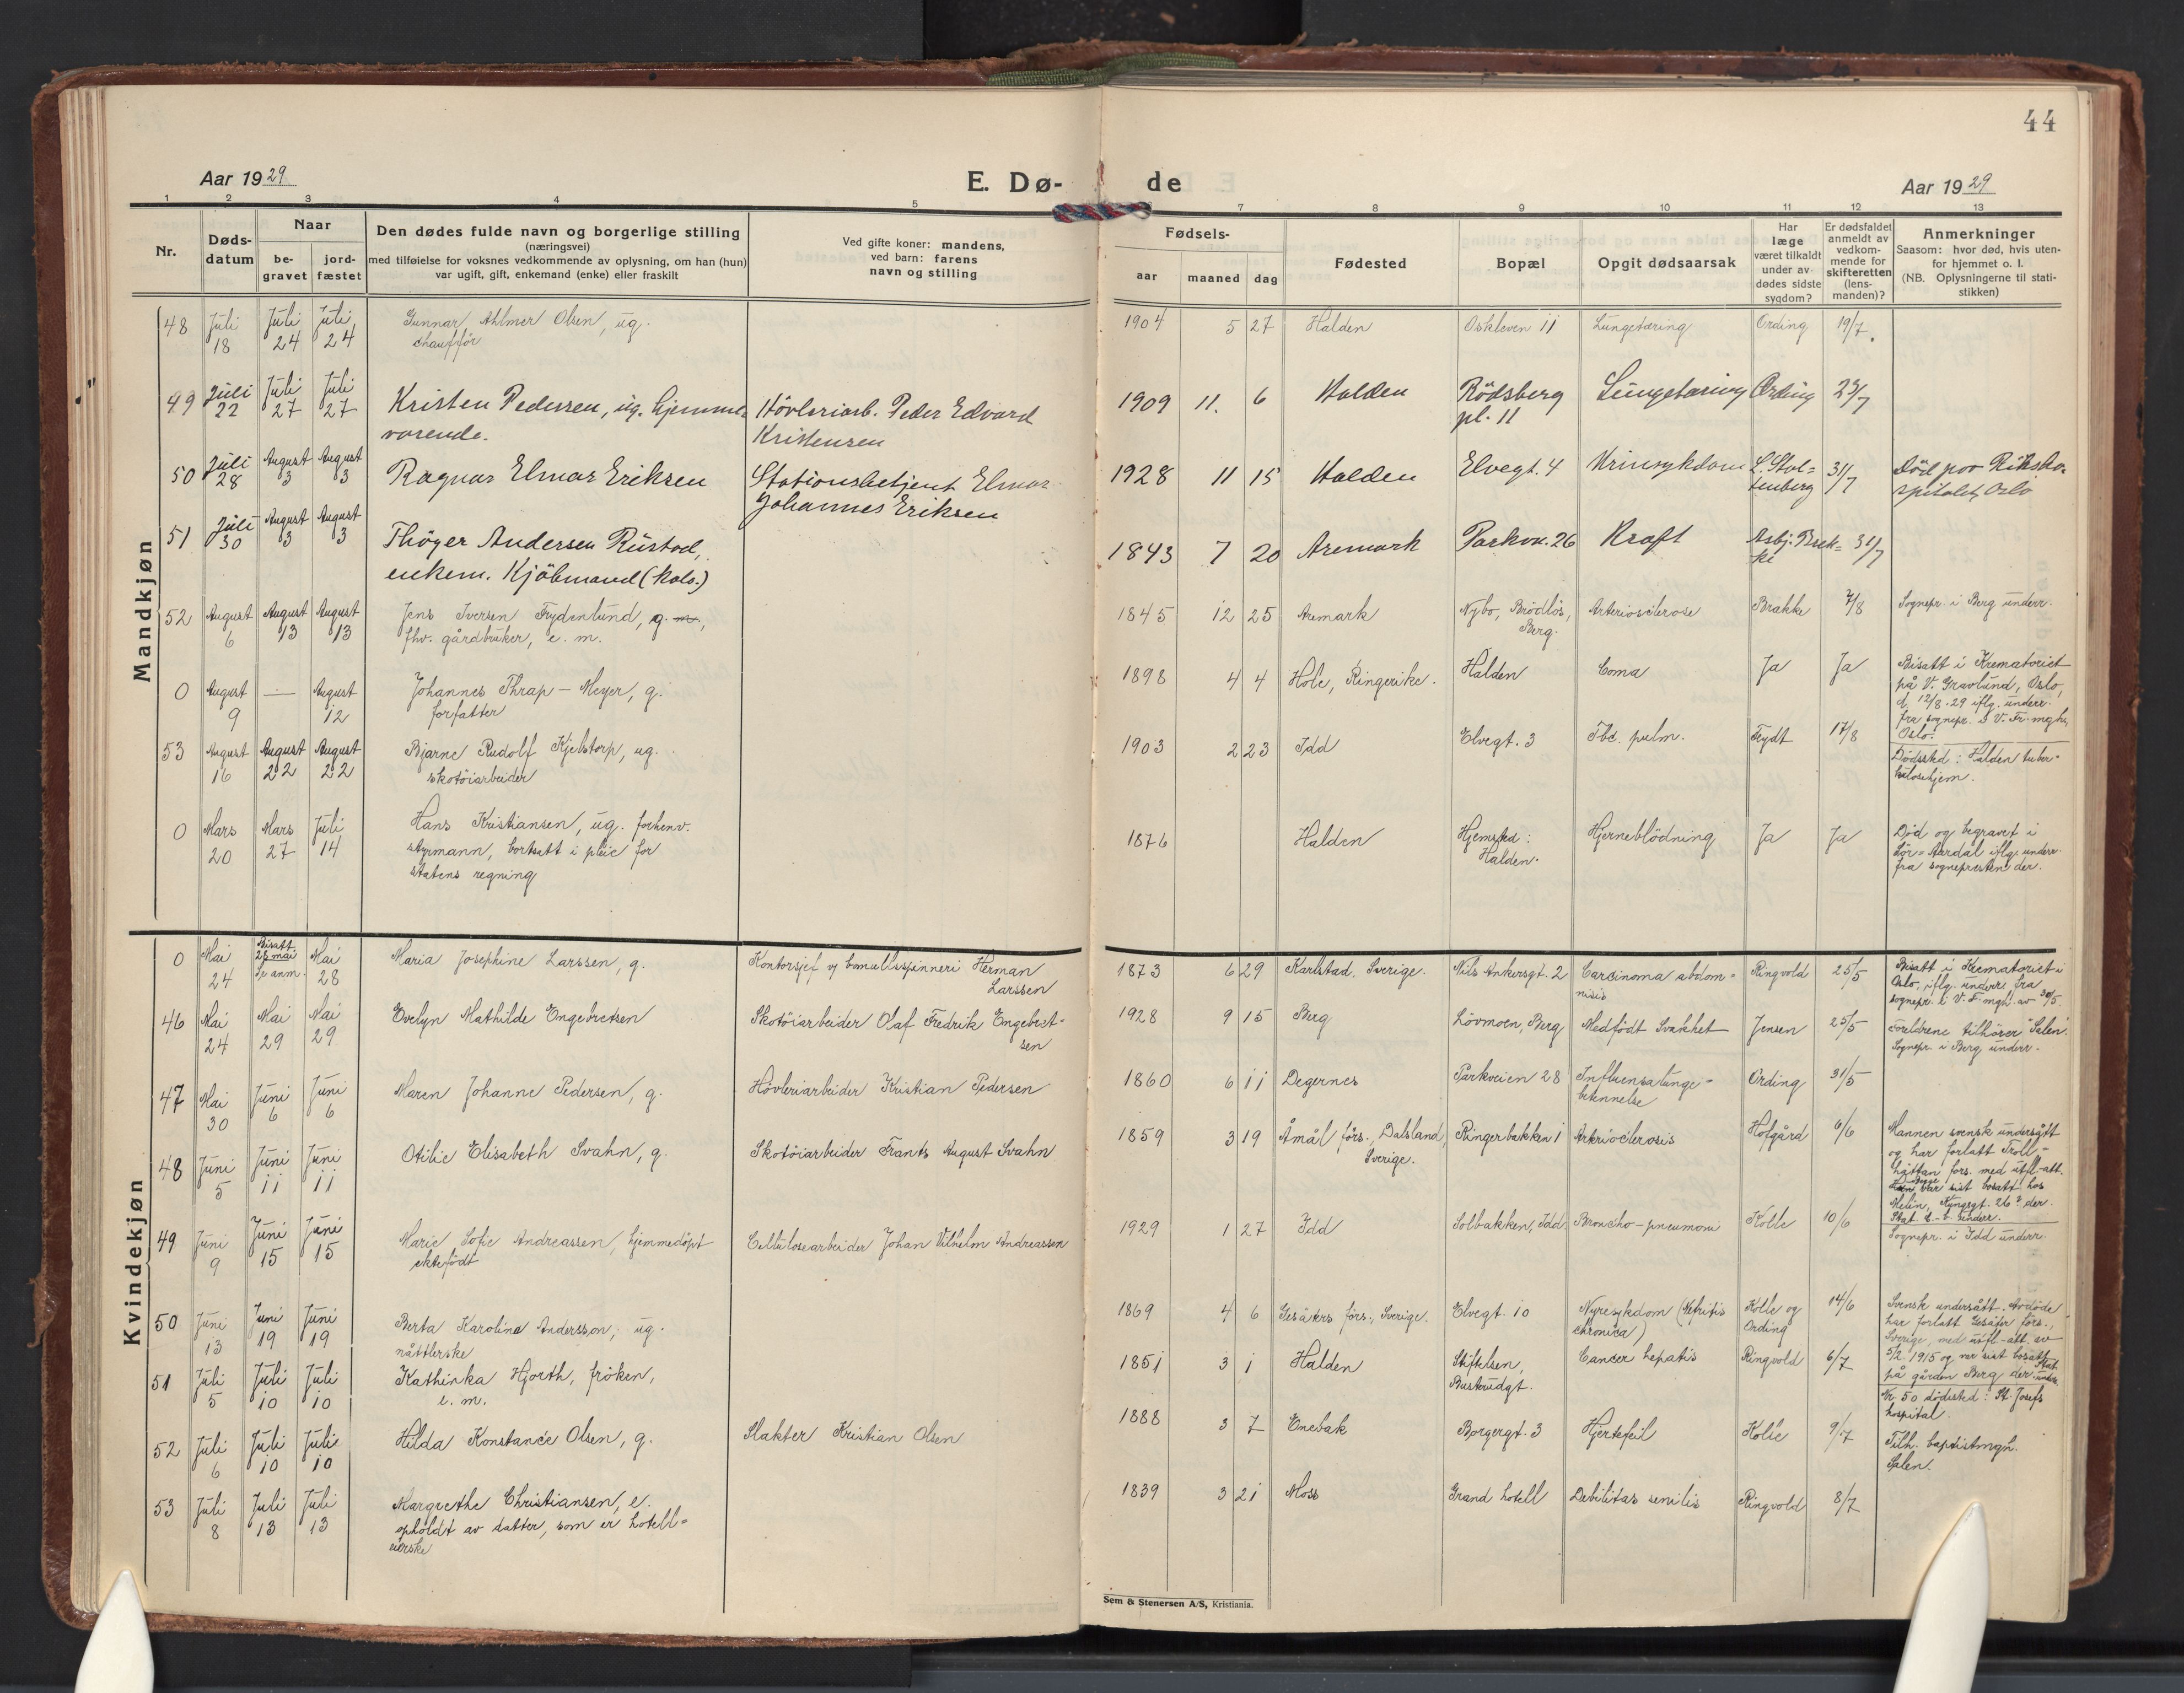 44
Aar 1929
E. Dø-
de
Aar 1929
1 2 3 4 5 7 8 9 10 11 12 13
Nr.
Døds-
datum
Naar
be-
gravet
jord-
fæstet
Den dødes fulde navn og borgerlige stilling
(næringsvei)
med tilføielse for voksnes vedkommende av oplysning, om han (hun)
var ugift, gift, enkemand (enke) eller fraskilt
Ved gifte koner: mandens,
ved barn: farens
navn og stilling
Fødsels-
aar
maaned
dag
Fødested
Bopæl
Opgit dødsaarsak
Har
læge
været tilkaldt
under av-
dødes sidste
sygdom?
Er dødsfaldet
anmeldt av
vedkom-
mende for
skifteretten
(lens-
manden)?
Anmerkninger
Saasom: hvor død, hvis uten-
for hjemmet o. l.
(NB. Oplysningerne til stati-
stikken)
Mandkjøn
48 Juli 18 Juli 24 Juli 24
Gunnar Ahlmer Olsen, ug.
chauffør
1904 5 27 Halden Oskleven 11 Lungetæring Ording 19/7.
49 Juli 22 Juli 27 Juli 27
Kristen Pedersen, ug. hjemme-
værende.
Høvleriarb. Peder Edvard
Kristensen
1909 11. 6 Halden Rødsberg
pl. 11
Lungetæring Ording 23/7
50 Juli 28 August 3 August 3
Ragnar Elmar Eriksen
Stationsbetjent Elmar
Johannes Eriksen
1928 11 15 Halden Elvegt. 4 L. Stol-
tenberg
31/7
Død paa Riksho-
spitalet, Oslo
51 Juli 30 August 3 August 3
Thøger Andersen Rustad,
enkem. Kjøbmand (kolo.)
1843 7 20 Aremark Parkv. 26 Kræft Asbj. Bræk-
ke
31/7
52 August 6 August 13 August 13
Jens Iversen Frydenlund, g. m.,
fhv. gårdbruker, e. m.
1845 12 25 Aremark Nybo, Brødløs,
Berg.
Arteriosclerose Brække 7/8
Sognepr. i Berg underr.
0 August 9 — August 12
Johannes Thrap-Meyer, g.
forfatter
1898 4 4 Hole, Ringerike. Halden Coma Ja Ja
Bisatt i Krematoriet
på V. Gravlund, Oslo,
d. 12/8-29 iflg. underr.
fra sognepr. i V. Fr. mgh.,
Oslo.
53 August 16 August 22 August 22
Bjarne Rudolf Kjelstorp, ug.
skotøiarbeider
1903 2 23 Idd Elvegt. 3 Tbc. pulm. Frydt 17/8
Dødssted: Halden tuber-
kulosehjem.
0 Mars 20 Mars 27 Juli 14
Hans Kristiansen, ug. forhenv.
styrmann, bortsatt i pleie for
statens regning
1876 Halden Hjemsted:
Halden.
Hjerneblødning Ja Ja
Død og begravet i
Sør-Aurdal iflg. underr.
fra sognepresten der.
Kvindekjøn
0 Mai 24 Bisatt
28 mai
se anm.
Mai 28
Maria Josephine Larssen, g.
Kontorsjef v/ bomullsspinneri Herman
Larssen
1873 6 29 Karlstad, Sverige. Nils Ankersgt. 2 Carcinoma abdom-
nisis
Ringvold 25/5
Bisatt i Krematoriet i
Oslo, iflg. underr. fra
sognepr. i V. F. mgh. av 30/5.
46 Mai 24 Mai 29 Mai 29
Evelyn Mathilde Engebretsen
Skotøiarbeider Olaf Fredrik Engebret-
sen
1928 9 15 Berg Løvmoen, Berg Medfødt Svakhet Jensen 25/5
Foreldrene tilhører "Salen".
Sognepr. i Berg underr.
47 Mai 30 Juni 6 Juni 6
Maren Johanne Pedersen, g.
Høvleriarbeider Kristian Pedersen
1860 6 11 Degernes Parkveien 28 Influensalunge-
betennelse
Ording 31/5
48 Juni 5 Juni 11 Juni 11
Otilie Elisabeth Svahn, g.
Skotøiarbeider Frants August Svahn
1859 3 19 Åmål førs., Dalsland,
Sverige.
Ringerbakken 1 Arteriosclerosis Hofgård 6/6
Mannen svensk undersått
og har forlatt Troll-
hättan førs. med utfl.-att.
var sist bosatt hos
der.
underr.
49 Juni 9 Juni 15 Juni 15
Marie Sofie Andreassen, hjemmedøpt
ektefødt
Cellulosearbeider Johan Vilhelm Andreassen
1929 1 27 Idd Solbakken, Idd Broncho-pneumoni Kolle 10/6
Sognepr. i Idd underr.
50 Juni 13 Juni 19 Juni 19
Berta Karolina Andersson, ug.
nåtlerske
1869 4 6 Gesäters førs., Sverige. Elvegt. 10 Nyresykdom (Nefritis
chronica)
Kolle og
Ording
14/6
Svensk undersått. Avdøde
har forlatt Gesäter førs.,
Sverige, med utfl.-att. av
5/2 1915 og var sist bosatt
på gården Berg der.
Nr. 50 dødssted: St. Josefs
hospital.
51 Juli 5 Juli 10 Juli 10
Kathinka Hjorth, frøken,
e. m.
1851 3 1 Halden Stiftelsen,
Busterudgt.
Cancer hepatis Ringvold 6/7
52 Juli 6 Juli 10 Juli 10
Hilda Konstance Olsen, g.
Slakter Kristian Olsen
1888 3 7 Enebak Borgergt. 3 Hjertefeil Kolle 9/7
Tilh. baptistmgh.
Salen.
53 Juli 8 Juli 13 Juli 13
Margrethe Christiansen, e.
opholdt av datter, som er hotell-
eierske
1839 3 21 Moss Grand hotell Debilitas senilis Ringvold 8/7
Sem & Stenersen A/S, Kristiania.